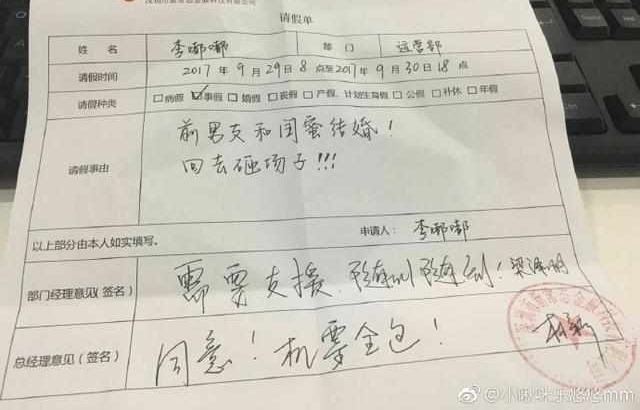 请假单
姓 名 李嘟嘟 部 门 运营部
请假时间 2017 年 9 月 29 日 8 点至 2017 年 9 月 30 日 18 点
请假种类 □病假 ☑事假 □婚假 □丧假 □产假、计划生育假 □公假 □补休 □年假
前男友和闺蜜结婚!
请假事由
回去砸场子!!!
以上部分由本人如实填写。 申请人: 李嘟嘟
部门经理意见(签名) 需要支援,随叫随到!
总经理意见(签名) 同意!机票全包!